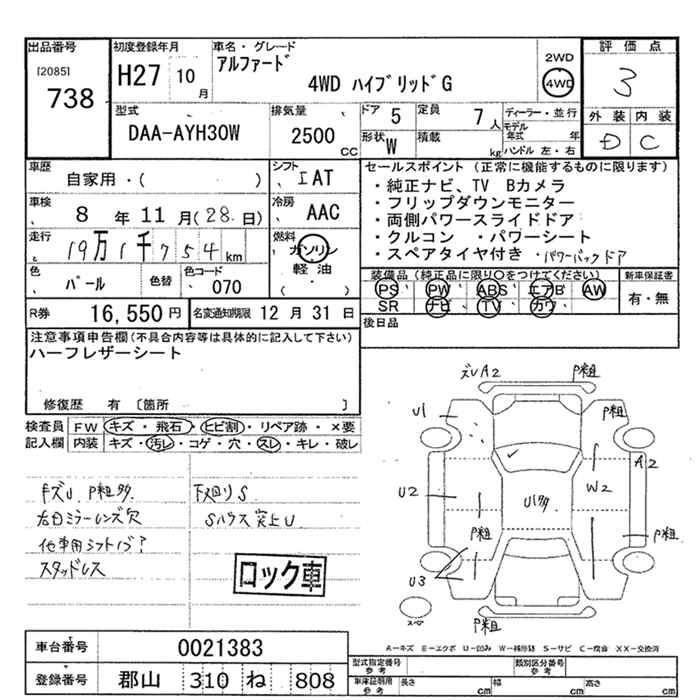 出品番号
[2085]
738
初度登録年月
H27 10 月
車名・グレード
アルファード
4WD ハイブリッドG
2WD
4WD
評価点
3
外装 内装
D C
型式
DAA-AYH30W
排気量
2500 CC
ドア 5
定員 7 人
形状 W
積載 kg
ディーラー・並行
モデル年式 年
ハンドル 左・右
車歴
自家用・( )
シフト
I AT
車検
8 年 11 月 (28 日)
冷房
AAC
走行
19万1千754 km
燃料
ガソリン
軽油
( )
色
パール
色替
色コード
070
セールスポイント (正常に機能するものに限ります)
・純正ナビ、TV Bカメラ
・フリップダウンモニター
・両側パワースライドドア
・クルコン ・パワーシート
・スペアタイヤ付き ・パワーバックドア
装備品 (純正品に限り〇をつけてください)
PS ・ PW ・ ABS ・ エアB ・ AW
SR ・ ナビ ・ TV ・ カワ
新車保証書
有・無
後日品
R券
16,550 円
名変通知期限
12 月 31 日
注意事項申告欄 (不具合内容等は具体的に記入して下さい)
ハーフレザーシート
修復歴 有 〔箇所 〕
検査員記入欄
FW キズ・飛石・ヒビ割・リペア跡・×要
内装 キズ・汚レ・コゲ・穴・スレ・キレ・破レ
キズU P粗多
右白ミラーレンズ欠
他車用シフトノブ?
スタッドレス
下廻りS
Sハウス突上U
ロック車
ズUA2
P粗
U1
P粗
A2
U2
W2
U1多
P粗
P粗
U3
P粗
スペア
A－キズ E－エクボ U－凹み W－補修跡 S－サビ C－腐食 XX－交換済
車台番号
0021383
登録番号
郡山 310 ね 808
型式指定番号
参考
類別区分番号
参考
車庫証明用
参考
長さ cm
幅 cm
高さ cm